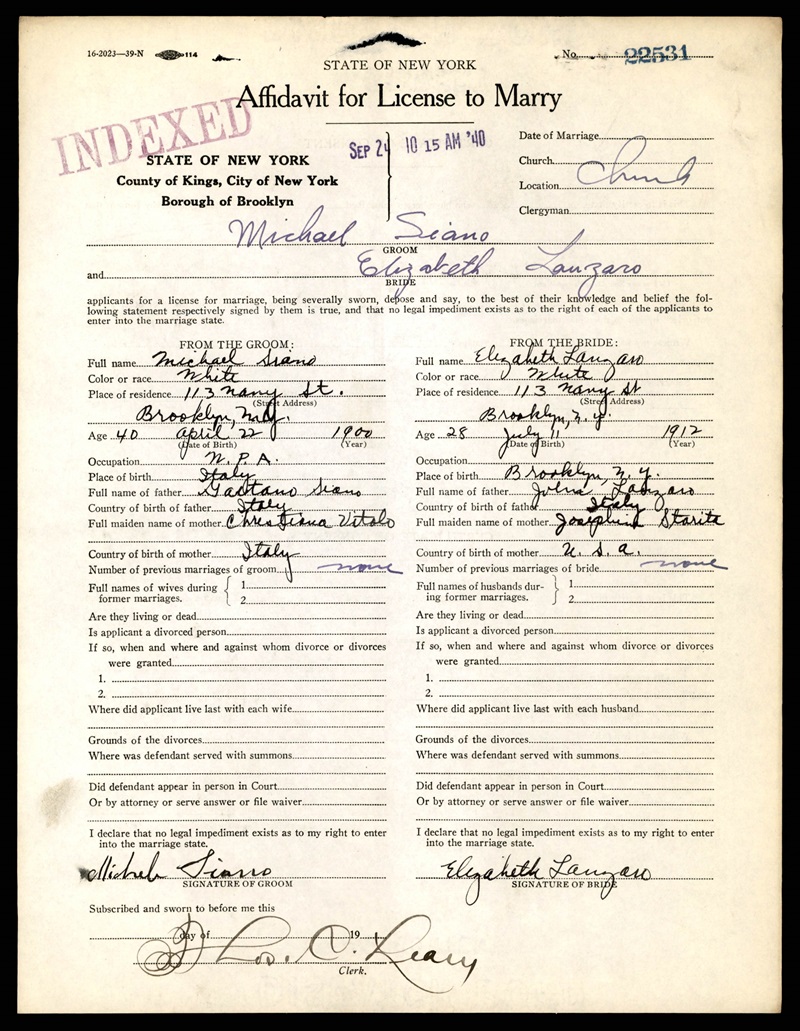 16-2023—39-N 114
No. 22531
STATE OF NEW YORK
Affidavit for License to Marry
INDEXED
SEP 24 10 15 AM '40
STATE OF NEW YORK
County of Kings, City of New York
Borough of Brooklyn
Date of Marriage
Church
Location Church
Clergyman
Michael Siano
GROOM
and Elizabeth Lanzaro
BRIDE
applicants for a license for marriage, being severally sworn, depose and say, to the best of their knowledge and belief the fol-
lowing statement respectively signed by them is true, and that no legal impediment exists as to the right of each of the applicants to
enter into the marriage state.
FROM THE GROOM:
Full name Michael Siano
Color or race White
Place of residence 113 Navy St.
(Street Address)
Brooklyn, N.Y.
Age 40 April 22 1900
(Date of Birth) (Year)
Occupation W.P.A.
Place of birth Italy
Full name of father Gaetano Siano
Country of birth of father Italy
Full maiden name of mother Christiana Vitolo
Country of birth of mother Italy
Number of previous marriages of groom none
Full names of wives during former marriages. { 1
2
Are they living or dead
Is applicant a divorced person
If so, when and where and against whom divorce or divorces
were granted
1.
2.
Where did applicant live last with each wife
Grounds of the divorces
Where was defendant served with summons
Did defendant appear in person in Court
Or by attorney or serve answer or file waiver
I declare that no legal impediment exists as to my right to enter
into the marriage state.
Michele Siano
SIGNATURE OF GROOM
FROM THE BRIDE:
Full name Elizabeth Lanzaro
Color or race White
Place of residence 113 Navy St
(Street Address)
Brooklyn, N.Y.
Age 28 July 11 1912
(Date of Birth) (Year)
Occupation
Place of birth Brooklyn, N.Y.
Full name of father John Lanzaro
Country of birth of father Italy
Full maiden name of mother Josephine Starita
Country of birth of mother U.S.A.
Number of previous marriages of bride none
Full names of husbands dur-ing former marriages. } 1
2
Are they living or dead
Is applicant a divorced person
If so, when and where and against whom divorce or divorces
were granted
1.
2.
Where did applicant live last with each husband
Grounds of the divorces
Where was defendant served with summons
Did defendant appear in person in Court
Or by attorney or serve answer or file waiver
I declare that no legal impediment exists as to my right to enter
into the marriage state.
Elizabeth Lanzaro
SIGNATURE OF BRIDE
Subscribed and sworn to before me this
day of 19
C. Leary
Clerk.